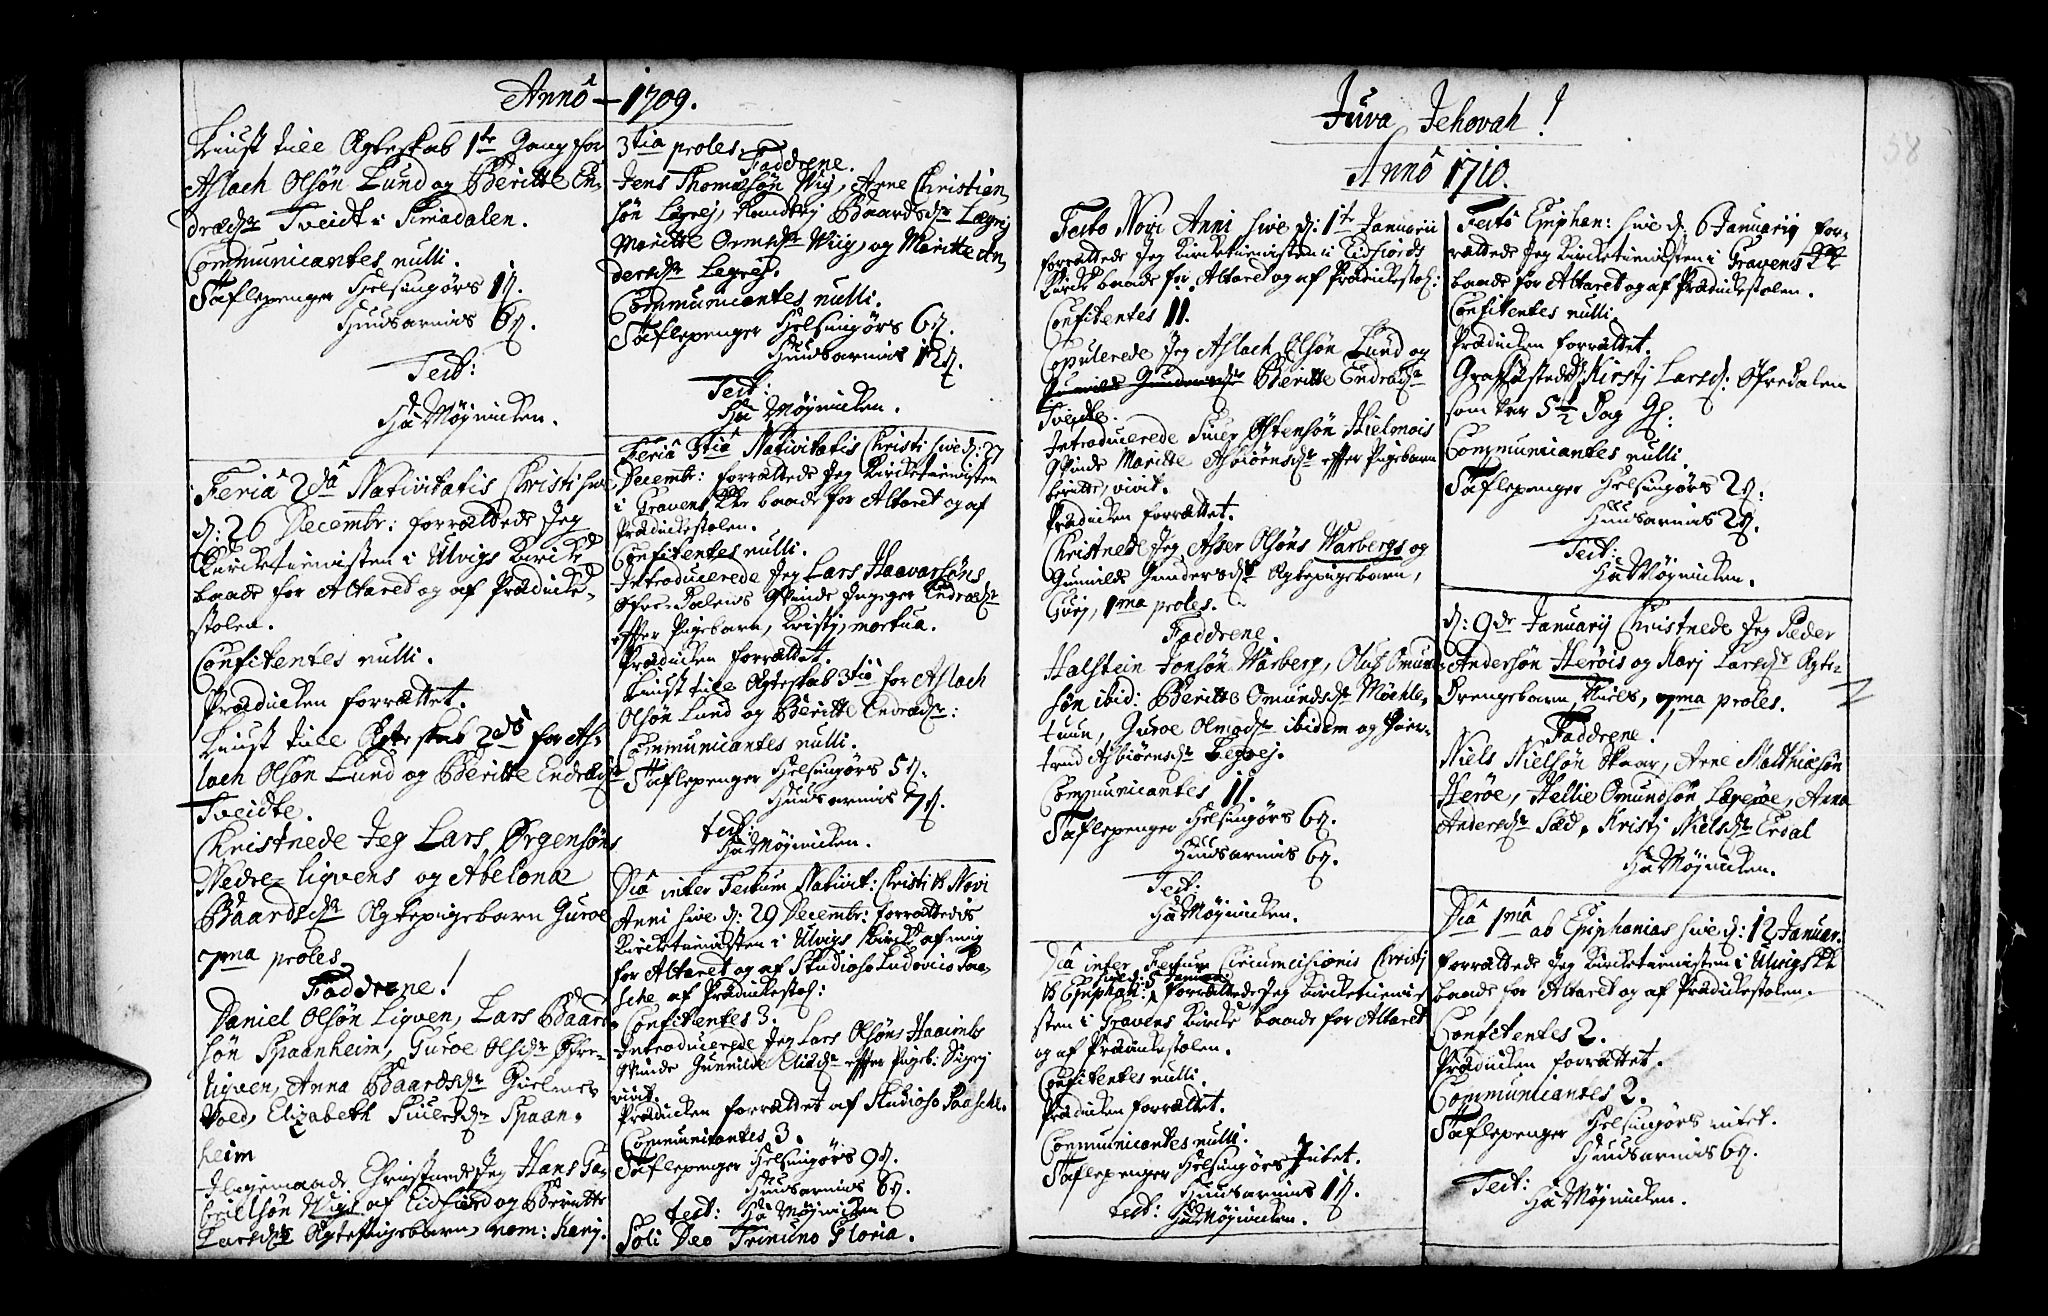 Annô — 1709.
Liust till Ægteskab 1te Gang for
Aslach Olsøn Lund og Beritte En-
drædsr Tveidt i Simadalen.
Communicantes nulli.
Taflepenger Helsingørs 1 ß.
Huusarmis 6 ß.
Test:
HA Møjnicken.
Feriâ 2dâ Nativitatis Christi sive
d: 26 Decembr: forrættede Jeg
Kircketienisten i Ulvigs Kircke
baade for Altaret og af Prædicke-
stolen.
Confitentes nulli.
Prædicken forrættet.
Liust till Ægteskab 2do for As-
lach Olsøn Lund og Beritte Endrædsr
Tveidte.
Christnede Jeg Lars Ørgensøns
Nedre-Ligvens og Abelonæ
Baardsdr Ægtepigebarn Guroe
7ma proles
Faddrene!
Daniel Olsøn Ligven, Lars Baard-
søn Spaanheim, Guroe Olsdr Øfre-
ligven, Anna Baardsdr Hielmes
Vold, Elizabeth Siursdr Spaan-
heim
Iligemaade Christnede Jeg Hans Ga-
brielsøn Wigs af Eidfiord og Beritte
Larsdrs Ægtepigebarn, nom: Karj.
3tia proles.
Faddrene.
Jens Thomæsøn Wig, Arne Christian-
søn Legrej, Randvej Baardsdr Lægrej
Maritte Ormsdr Wiig, og Maritte An-
dersdr Legrej.
Communicantes nulli.
Taflepenger Helsingørs 6 ß.
Huusarmis 12 ß.
Test:
HA Møjnicken.
Feriâ 3tiâ Nativitatis Christi sive d: 27
Decembr: forrættede Jeg Kircketienisten
i Gravens Kke baade for Altaret og af
Prædickestolen.
Confitentes nulli.
Introducerede Jeg Lars Haavarsøns
Øfre-Dalens Qvinde Ingeger Endrædsr
effter Pigebarn, Kristj, mortua.
Prædicken forrættet.
Liust till Ægteskab 3tio for Aslach
Olsøn Lund og Beritte Endrædsr:
Communicantes nulli.
Taflepenger Helsingørs 5 ß.
Huusarmis 7 ß.
test:
HA Møjnicken.
Diâ inter Festum Nativit: Christi & Novi
Anni sive d: 29 Decembr: forrættedis
Kircketienisten i Ulvigs Kircke af mig
for Altaret og af Studioso Ludovico Paa-
sche af Prædickestol:
Confitentes 3.
Introducerede Jeg Lars Olsøns Haaimbs
Qvinde Gunnilde Elisdr effter Pigeb: Sigrj
vivit.
Prædicken forrættet af Studioso Paasche.
Communicantes 3.
Taflepenger Helsingørs 9 ß.
Huusarmis 6 ß.
test: HA Møjnicken
Soli Deo Trinuno Gloria.
Juva Jehovah!
Annô 1710.
58
Festo Novi Anni sive d: 1te Januarii
forrættede Jeg Kircketienisten i Eidfiords
Kircke baade for Altaret og af Prædickestol:
Confitentes 11.
Copulerede Jeg Aslach Olsøn Lund og
Gunnilde Gundersdr Beritte Endrædsr
Tveidte.
Introducerede Siur Østensøn Hielmois
Qvinde Maritte Asbiørnsdr effter Pigebarn
Beritte, vivit.
Prædicken forrættet.
Christnede Jeg Asser Olsøns Warbergs og
Gunnilde Gundersdrs Ægtepigebarn,
Gurj, 1ma proles.
Faddrene.
Halstein Jonsøn Warberg, Oluf Omund-
søn ibid: Beritte Omundsdr Møchle-
tuun, Guroe Olmodsr ibidem og Giær-
trud Asbiørnsdr Legrej.
Communicantes 11.
Taflepenger Helsingørs 6 ß.
Huusarmis 6 ß.
Test:
HA Møjnicken.
Diâ inter Festum Circumcisionis Christj
& Epiphan: sive d: 5 Januarj forrættede Jeg Kircketieni-
sten i Gravens Kircke baade for Altaret
og af Prædickestolen.
Confitentes nulli.
Prædicken forrættet.
Communicantes nulli.
Taflepenger Helsingørs Intet.
Huusarmis 1 ß.
test: HA Møjnicken.
Festo Epiphan: sive d. 6 Januarij for-
rættede Jeg Kircketienisten i Gravens Kke
baade for Altaret og af Prædickestolen.
Confitentes nulli.
Prædicken forrættet.
Graffæstede Kirstj Larsd: Øfredalen
som var 5½ Dag Gl:
Communicantes nulli.
Taflepenger Helsingørs 2 ß.
Huusarmis 2 ß.
Test:
HA Møjnicken.
d: 9de Januarij Christnede Jeg Peder
Andersøn Herøis og Karj Larsdrs Ægte-
Drengebarn, Niels, 7ma proles.
Faddrene!
Niels Nielsøn Skaar, Arne Matthiæsøn
Herøe, Hellie Omundsøn Lægerøe, Anna
Andersdr Sæd, Kristj Nielsdr Erdal
HA Møjnicken.
Diâ 1mâ ab Epiphanias sive d: 12 Januar.
forrættede Jeg Kircketienisten i Ulvigs Kke
baade for Altaret og af Prædickestolen.
Confitentes 2.
Prædicken forrættet.
Communicantes 2.
Taflepenger Helsingørs intet.
Huusarmis 6 ß.
Test:
HA Møjnicken.